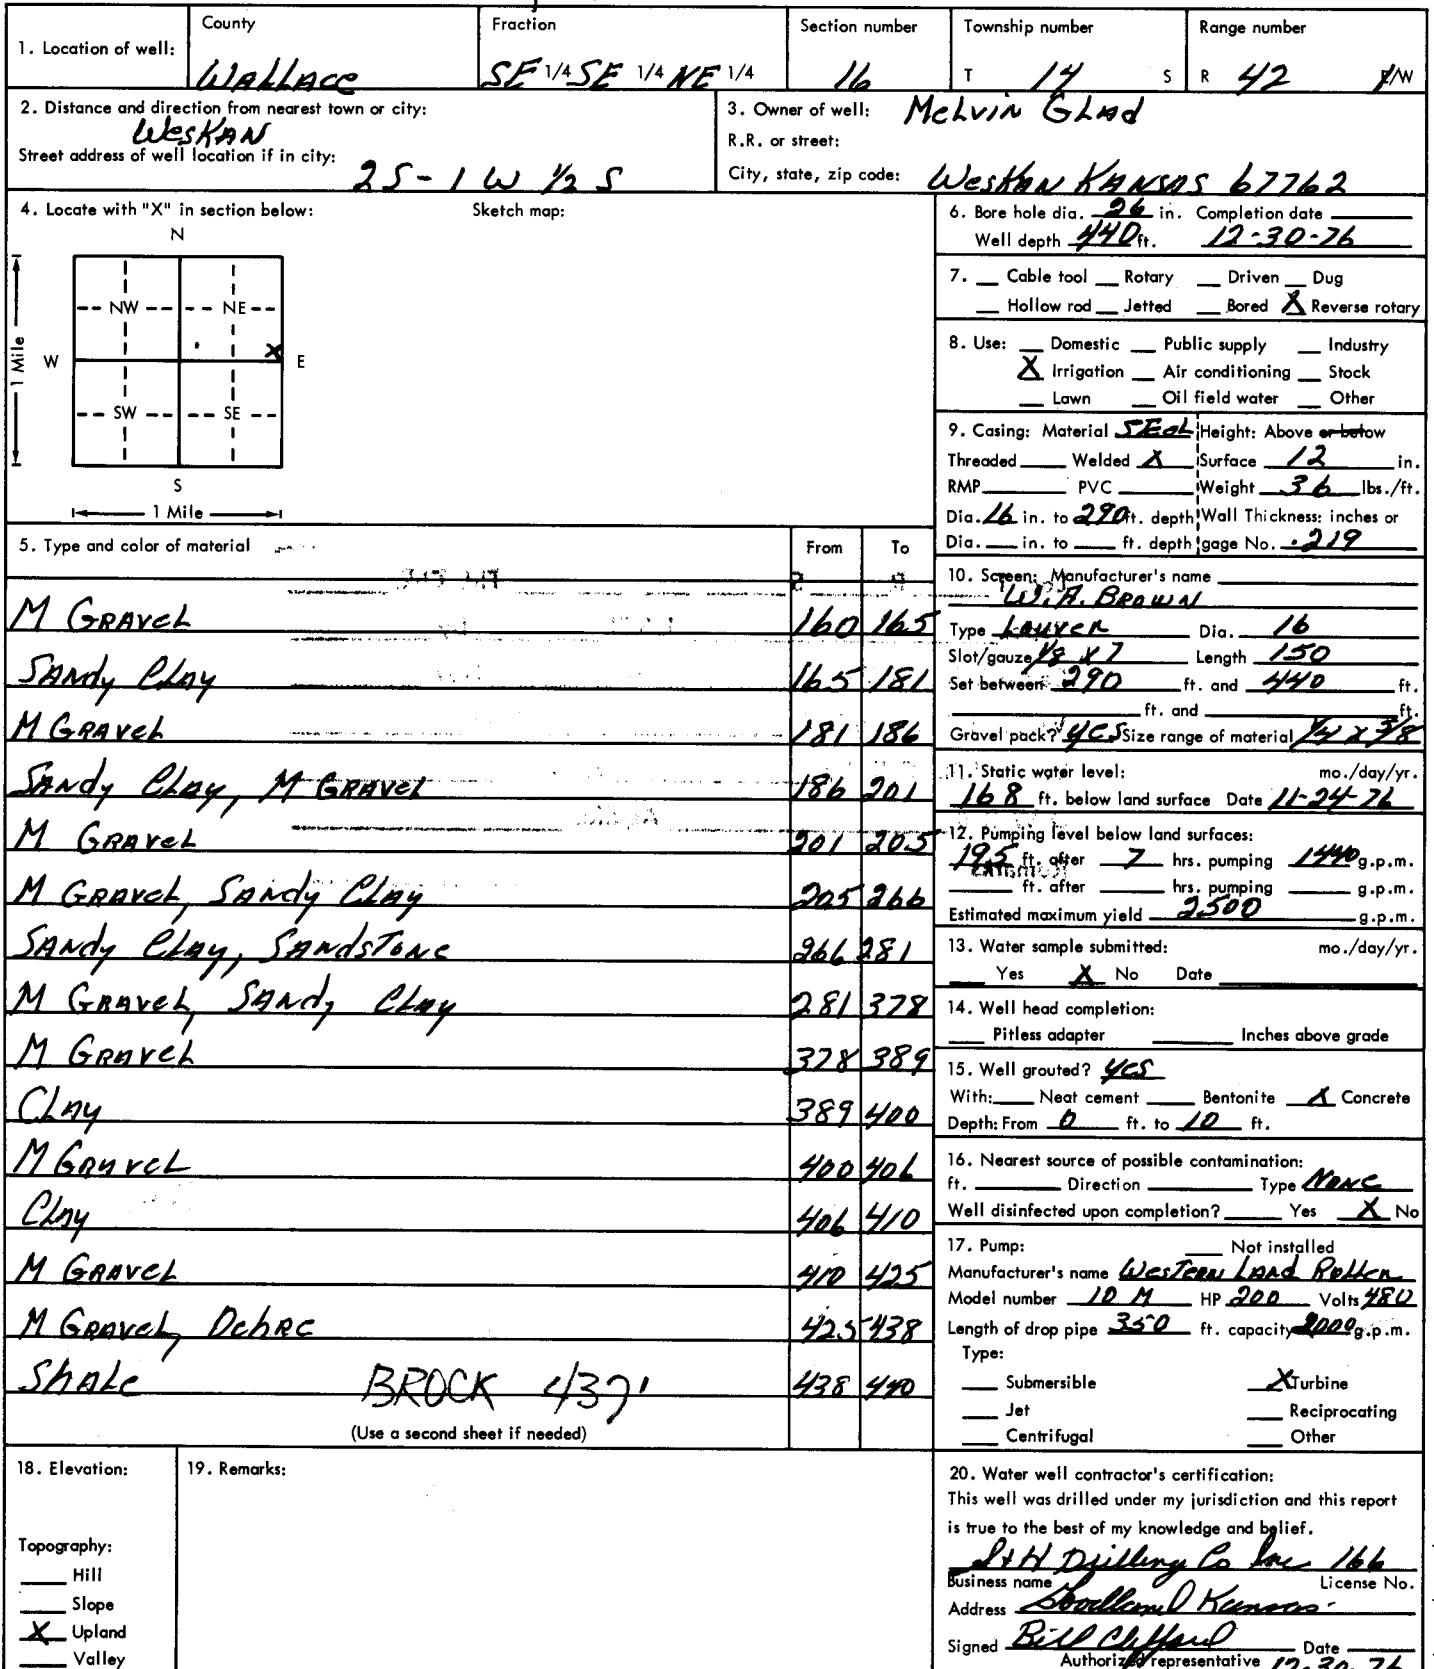 County Fraction Section number Township number Range number
1. Location of well: Wallace SE 1/4 SE 1/4 NE 1/4 16 T 14 S R 42 E/W
2. Distance and direction from nearest town or city:
Weskan
Street address of well location if in city:
2S - 1 W 1/2 S
3. Owner of well: Melvin Glad
R.R. or street:
City, state, zip code: Weskan Kansas 67762
4. Locate with "X" in section below: Sketch map:
N
NW NE
W X E
SW SE
S
1 Mile
1 Mile
5. Type and color of material From To
M Gravel 160 165
Sandy Clay 165 181
M Gravel 181 186
Sandy Clay, M Gravel 186 201
M Gravel 201 205
M Gravel, Sandy Clay 205 266
Sandy Clay, Sandstone 266 281
M Gravel, Sandy Clay 281 378
M Gravel 378 389
Clay 389 400
M Gravel 400 406
Clay 406 410
M Gravel 410 425
M Gravel, Ochre 425 438
Shale BROCK 437' 438 440
(Use a second sheet if needed)
6. Bore hole dia. 26 in. Completion date
Well depth 440 ft. 12-30-76
7. Cable tool Rotary Driven Dug
Hollow rod Jetted Bored X Reverse rotary
8. Use: Domestic Public supply Industry
X Irrigation Air conditioning Stock
Lawn Oil field water Other
9. Casing: Material SEOL Height: Above or below
Threaded Welded X Surface 12 in.
RMP PVC Weight 36 lbs./ft.
Dia. 16 in. to 290 ft. depth Wall Thickness: inches or
Dia. in. to ft. depth gage No. .219
10. Screen: Manufacturer's name
W.A. Brown
Type Louver Dia. 16
Slot/gauze 1/8 x 7 Length 150
Set between 290 ft. and 440 ft.
ft. and ft.
Gravel pack? yes Size range of material 1/4 x 3/8
11. Static water level: mo./day/yr.
168 ft. below land surface Date 11-24-76
12. Pumping level below land surfaces:
195 ft. after 7 hrs. pumping 1440 g.p.m.
ft. after hrs. pumping g.p.m.
Estimated maximum yield 2500 g.p.m.
13. Water sample submitted: mo./day/yr.
Yes X No Date
14. Well head completion:
Pitless adapter Inches above grade
15. Well grouted? yes
With: Neat cement Bentonite X Concrete
Depth: From 0 ft. to 10 ft.
16. Nearest source of possible contamination:
ft. Direction Type None
Well disinfected upon completion? Yes X No
17. Pump: Not installed
Manufacturer's name Western Land Roller
Model number 10 M HP 200 Volts 480
Length of drop pipe 350 ft. capacity 2000 g.p.m.
Type:
Submersible X Turbine
Jet Reciprocating
Centrifugal Other
18. Elevation:
Topography:
Hill
Slope
X Upland
Valley
19. Remarks:
20. Water well contractor's certification:
This well was drilled under my jurisdiction and this report
is true to the best of my knowledge and belief.
S+H Drilling Co Inc 166
Business name License No.
Address Goodland Kansas
Signed Bill Clifford Date
Authorized representative 12-30-76